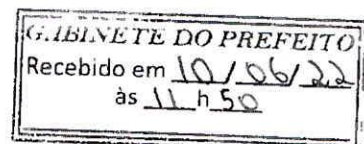 GABINETE DO PREFEITO
Recebido em 10/06/22
às 11 h 50